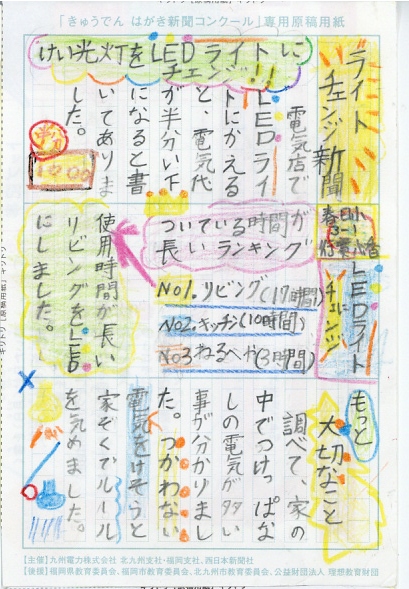 「きゅうでん はがき新聞コンクール」専用原稿用紙
ライト
チェンジ新聞
けい光灯をLEDライトに
チェンジ!!
電気店で
LEDライ
トにかえる
と、電気代
が半分以下
になると書
いてありま
した。
春日小
3-1
LEDライト
チェンジ
ついている時間が
長いランキング
No1. リビング(17時間)
No2. キッチン(10時間)
No3 ねるへや(3時間)
使用時間が長い
リビングをLED
にしました。
もっと
大切なこと
調べて、家の
中でつけっぱな
しの電気が多い
事が分かりまし
た。つかわない
電気をけそうと
家ぞくでルール
を決めました。
【主催】九州電力株式会社 北九州支社・福岡支社、西日本新聞社
【後援】福岡県教育委員会、福岡市教育委員会、北九州市教育委員会、公益財団法人 理想教育財団